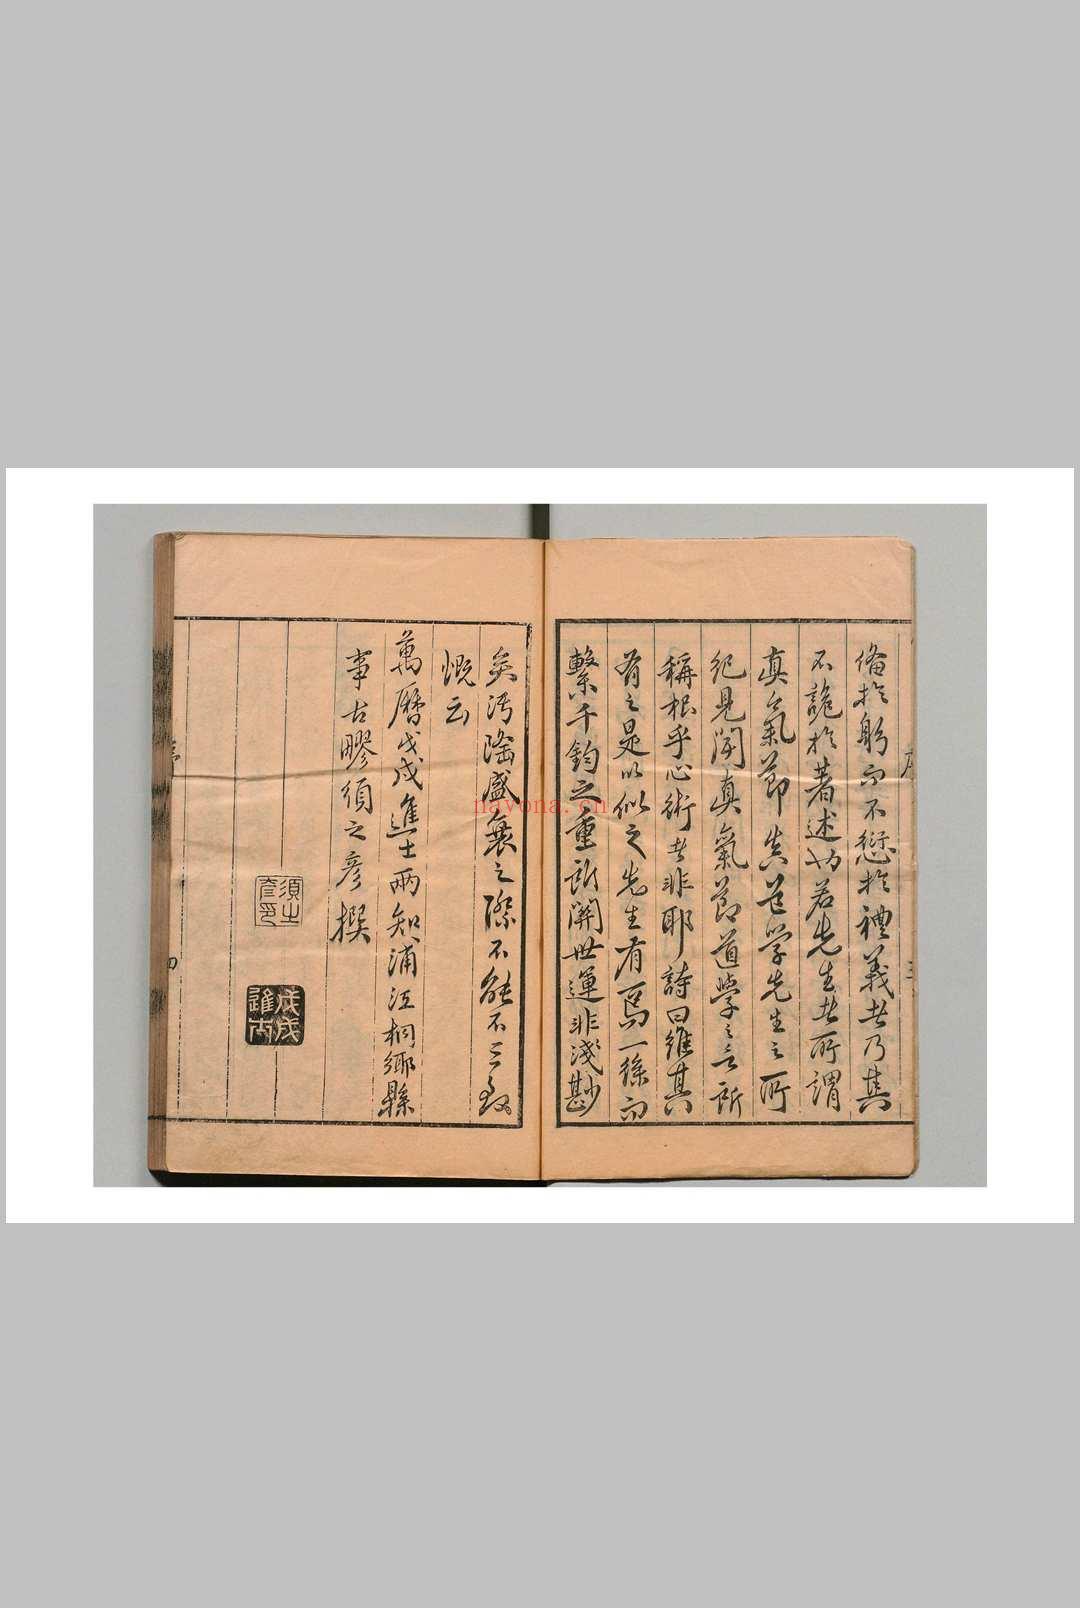 脩於躬而不愆於禮義者乃其
不詭於著述也若先生者所謂
真氣節真道學先生之所
紀見聞真氣節道學之言所
稱根乎心術者非耶詩曰維其
有之是以似之先生有焉一綫而
繫千鈞之重所關世運非淺尠
矣汚隆盛衰之際不能不三致
慨云
萬曆戊戌進士兩知浦江桐鄉縣
事古疁須之彥撰
須之彥印
戊戌進士
序
三
序
四
nayona.cn